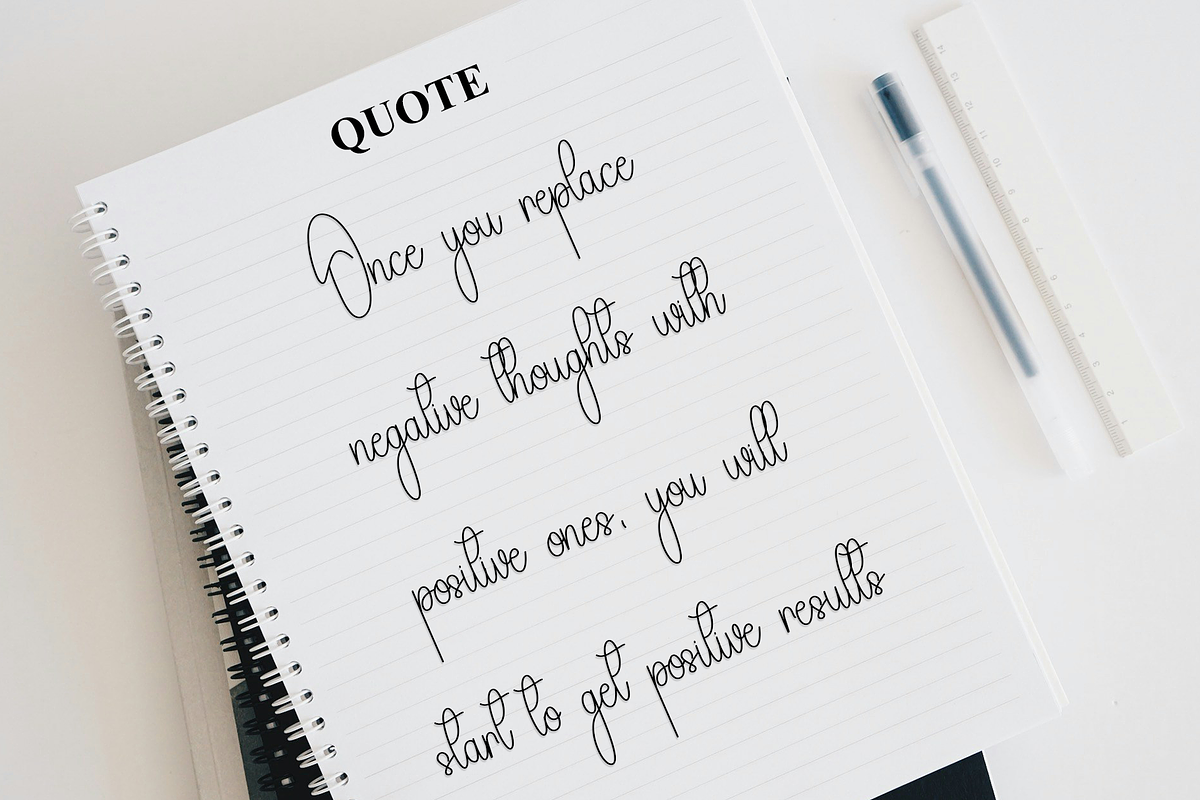 QUOTE
Once you replace
negative thoughts with
positive ones, you will
start to get positive results
14 13 12 11 10 9 8 7 6 5 4 3 2 1